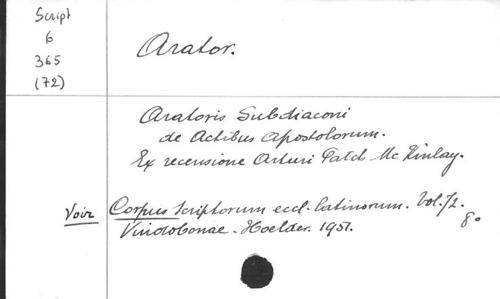 Script
6
365
(72)
Arator.
Aratoris Subdiaconi
de Actibus Apostolorum.
Ex recensione Arturi Patch Mc Kinlay.
Voir Corpus Scriptorum eccl. latinorum. Vol. 72.
Vindobonae. Hoelder. 1951. 8°